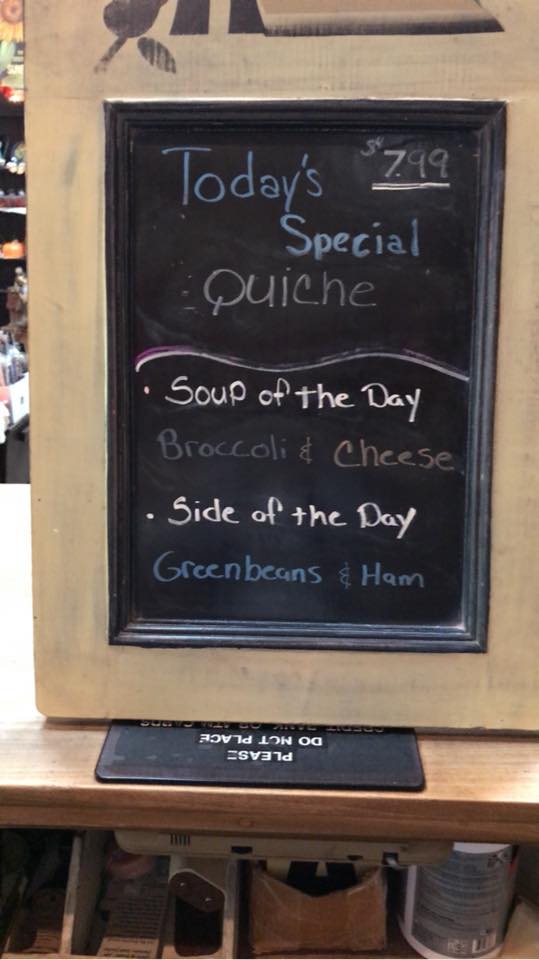 Today's $7.99
Special
Quiche
• Soup of the Day
Broccoli & Cheese
• Side of the Day
Greenbeans & Ham
PLEASE
DO NOT PLACE
CREDIT, BANK OR ATM CARDS